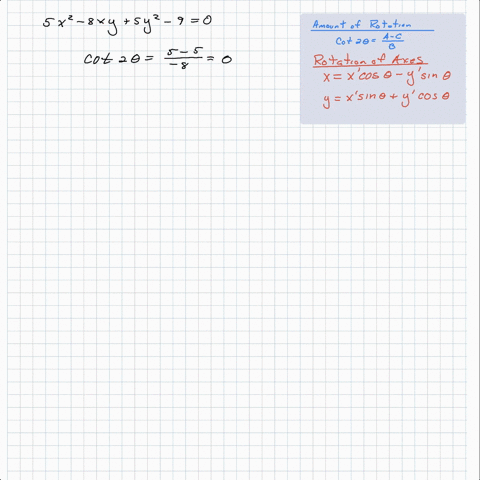 5x² - 8xy + 5y² - 9 = 0
cot 2θ = \frac{5-5}{-8} = 0
Amount of Rotation
Cot 2θ = \frac{A-C}{B}
Rotation of Axes
x = x'cos θ - y'sin θ
y = x'sin θ + y'cos θ